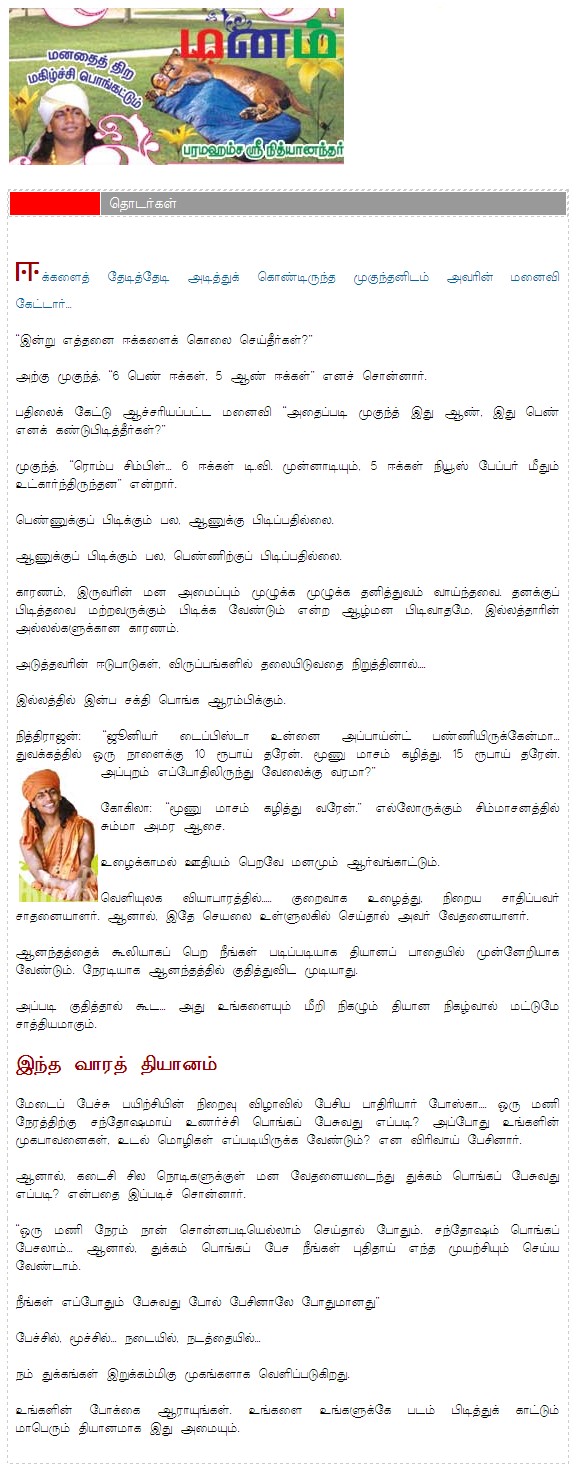 மனதைத் திற
மகிழ்ச்சி பொங்கட்டும்
தினம்
பரமஹம்ச ஸ்ரீ நித்யானந்தர்
தொடர்கள்
ஈக்களைத் தேடித்தேடி அடித்துக் கொண்டிருந்த முகுந்தனிடம் அவரின் மனைவி
கேட்டார்...
"இன்று எத்தனை ஈக்களைக் கொலை செய்தீர்கள்?"
அற்கு முகுந்த், "6 பெண் ஈக்கள், 5 ஆண் ஈக்கள்" எனச் சொன்னார்.
பதிலைக் கேட்டு ஆச்சரியப்பட்ட மனைவி "அதைப்படி முகுந்த் இது ஆண், இது பெண்
எனக் கண்டுபிடித்தீர்கள்?"
முகுந்த், "ரொம்ப சிம்பிள்... 6 ஈக்கள் டி.வி. முன்னாடியும், 5 ஈக்கள் நியூஸ் பேப்பர் மீதும்
உட்கார்ந்திருந்தன" என்றார்.
பெண்ணுக்குப் பிடிக்கும் பல, ஆணுக்கு பிடிப்பதில்லை.
ஆணுக்குப் பிடிக்கும் பல, பெண்ணிற்குப் பிடிப்பதில்லை.
காரணம், இருவரின் மன அமைப்பும் முழுக்க முழுக்க தனித்துவம் வாய்ந்தவை. தனக்குப்
பிடித்தவை மற்றவருக்கும் பிடிக்க வேண்டும் என்ற ஆழ்மன பிடிவாதமே, இல்லத்தாரின்
அல்லல்களுக்கான காரணம்.
அடுத்தவரின் ஈடுபாடுகள், விருப்பங்களில் தலையிடுவதை நிறுத்தினால்....
இல்லத்தில் இன்ப சக்தி பொங்க ஆரம்பிக்கும்.
நித்திராஜன்: "ஜூனியர் டைப்பிஸ்டா உன்னை அப்பாய்ன்ட் பண்ணியிருக்கேன்மா...
துவக்கத்தில் ஒரு நாளைக்கு 10 ரூபாய் தரேன். மூணு மாசம் கழித்து, 15 ரூபாய் தரேன்.
அப்புறம் எப்போதிலிருந்து வேலைக்கு வரமா?"
கோகிலா: "மூணு மாசம் கழித்து வரேன்." எல்லோருக்கும் சிம்மாசனத்தில்
சும்மா அமர ஆசை.
உழைக்காமல் ஊதியம் பெறவே மனமும் ஆர்வங்காட்டும்.
வெளியுலக வியாபாரத்தில்..... குறைவாக உழைத்து, நிறைய சாதிப்பவர்
சாதனையாளர். ஆனால், இதே செயலை உள்ளுலகில் செய்தால் அவர் வேதனையாளர்.
ஆனந்தத்தைக் கூலியாகப் பெற நீங்கள் படிப்படியாக தியானப் பாதையில் முன்னேறியாக
வேண்டும். நேரடியாக ஆனந்தத்தில் குதித்துவிட முடியாது.
அப்படி குதித்தால் கூட... அது உங்களையும் மீறி நிகழும் தியான நிகழ்வால் மட்டுமே
சாத்தியமாகும்.
இந்த வாரத் தியானம்
மேடைப் பேச்சு பயிற்சியின் நிறைவு விழாவில் பேசிய பாதிரியார் போஸ்கா.... ஒரு மணி
நேரத்திற்கு சந்தோஷமாய் உணர்ச்சி பொங்கப் பேசுவது எப்படி? அப்போது உங்களின்
முகபாவனைகள், உடல் மொழிகள் எப்படியிருக்க வேண்டும்? என விரிவாய் பேசினார்.
ஆனால், கடைசி சில நொடிகளுக்குள் மன வேதனையடைந்து துக்கம் பொங்கப் பேசுவது
எப்படி? என்பதை இப்படிச் சொன்னார்.
"ஒரு மணி நேரம் நான் சொன்னபடியெல்லாம் செய்தால் போதும். சந்தோஷம் பொங்கப்
பேசலாம்... ஆனால், துக்கம் பொங்கப் பேச நீங்கள் புதிதாய் எந்த முயற்சியும் செய்ய
வேண்டாம்.
நீங்கள் எப்போதும் பேசுவது போல் பேசினாலே போதுமானது"
பேச்சில், மூச்சில்... நடையில், நடத்தையில்...
நம் துக்கங்கள் இறுக்கம்மிகு முகங்களாக வெளிப்படுகிறது.
உங்களின் போக்கை ஆராயுங்கள். உங்களை உங்களுக்கே படம் பிடித்துக் காட்டும்
மாபெரும் தியானமாக இது அமையும்.